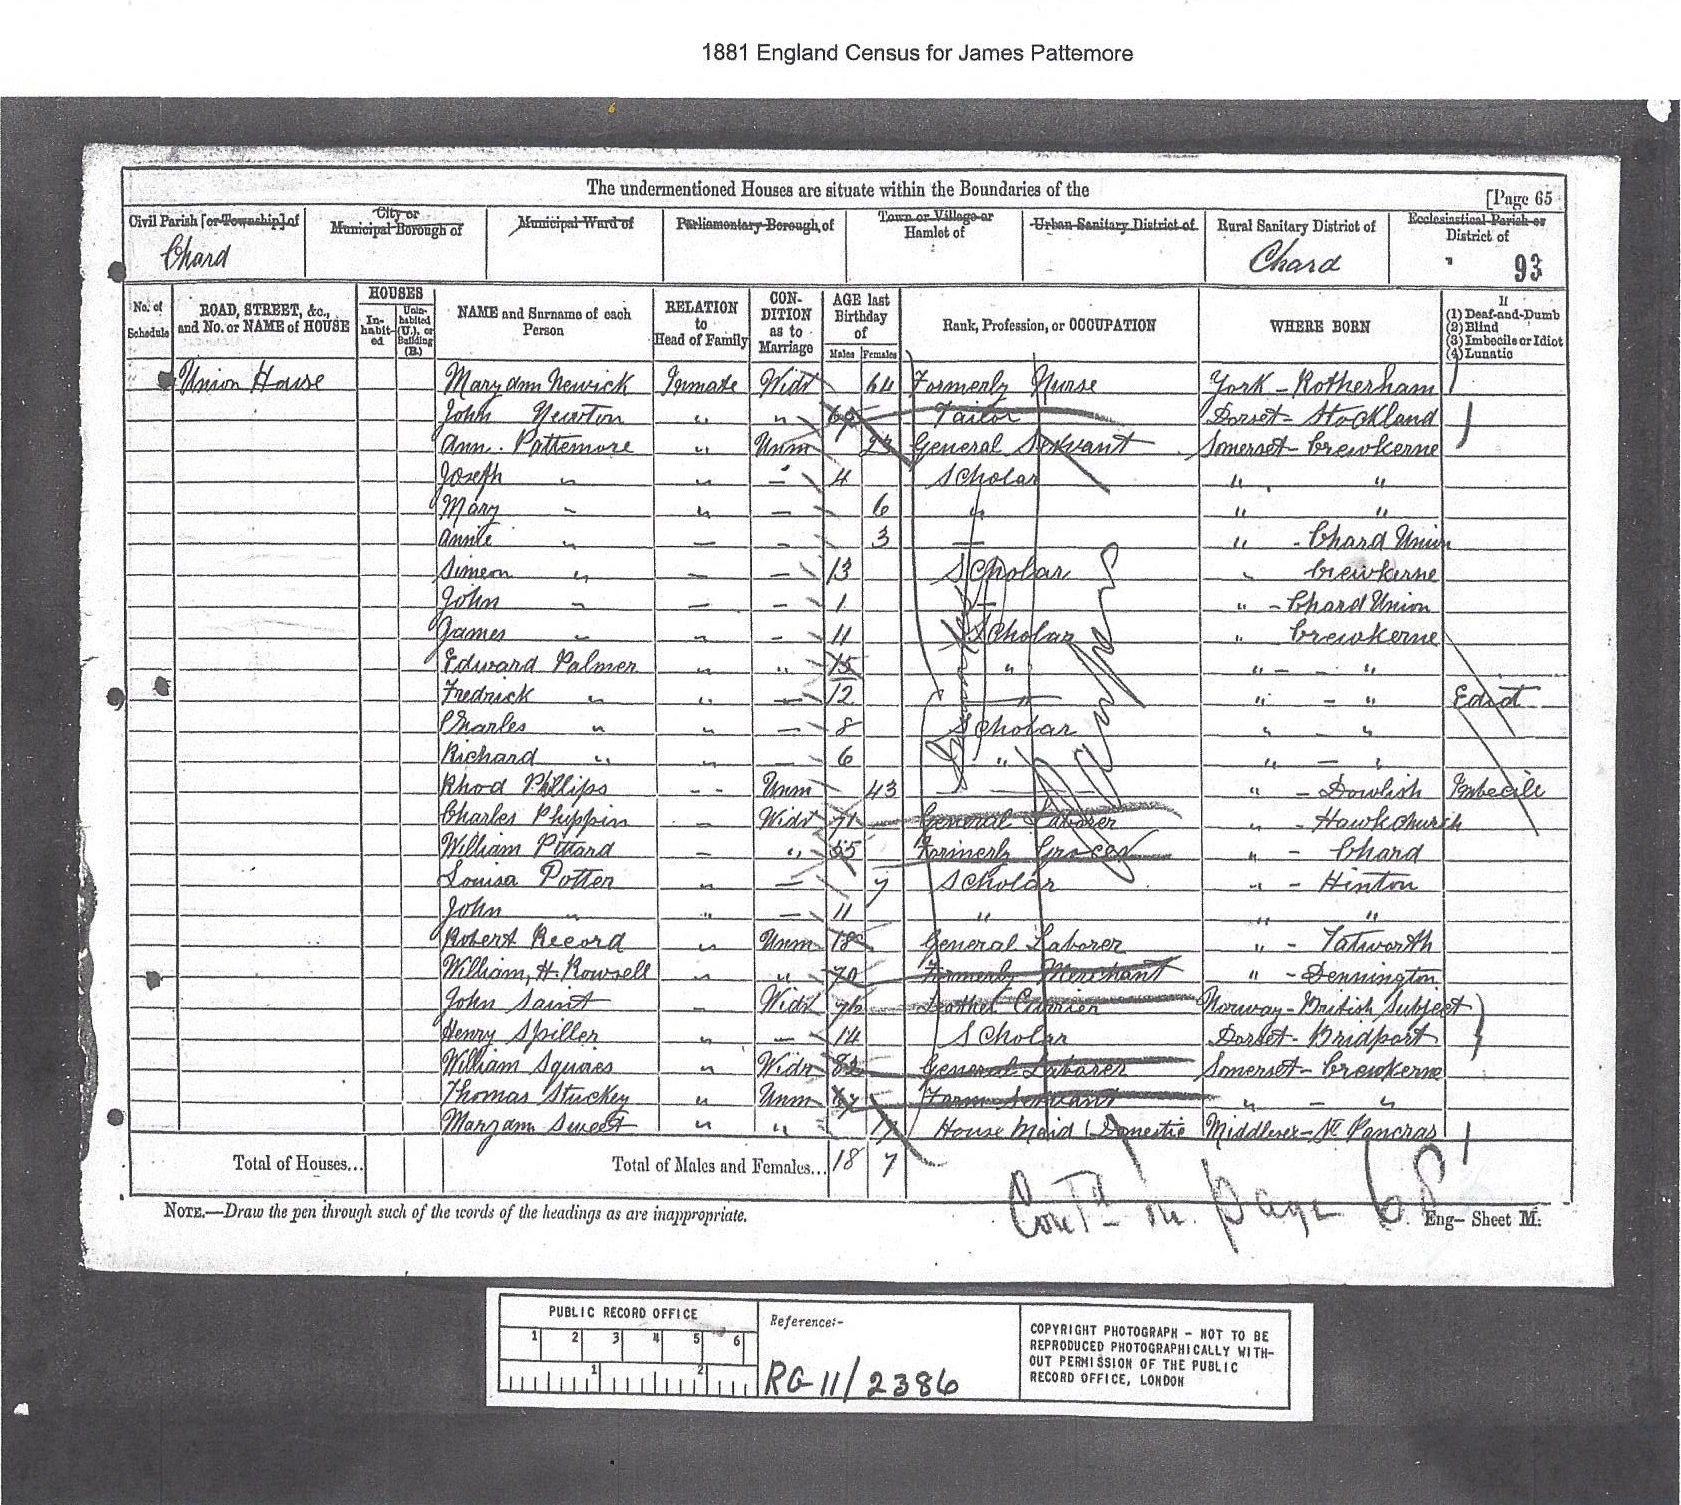 1881 England Census for James Pattemore
The undermentioned Houses are situate within the Boundaries of the
[Page 65
Civil Parish [or Township] of
Chard
City or Municipal Borough of
Municipal Ward of
Parliamentary Borough of
Town or Village or Hamlet of
Urban Sanitary District of
Rural Sanitary District of
Chard
Ecclesiastical Parish or District of
93
No. of Schedule
ROAD, STREET, &c., and No. or NAME of HOUSE
HOUSES
In-habit-ed
Unin-habited (U.), or Building (B.)
NAME and Surname of each Person
RELATION to Head of Family
CON-DITION as to Marriage
AGE last Birthday of
Males Females
Rank, Profession, or OCCUPATION
WHERE BORN
If
(1) Deaf-and-Dumb
(2) Blind
(3) Imbecile or Idiot
(4) Lunatic
Union House Mary ann Newick Inmate Widr 64 Formerly Nurse York - Rotherham
John Newton " " Tailor Dorset - Stockland
Ann. Pattemore " Unm 23 General Servant Somerset - Crewkerne
Joseph " " - 4 Scholar " "
Mary " " - 6 " " "
Annie " - - 3 - " - Chard Union
Simeon " - - 13 Scholar " Crewkerne
John " - - 1 - " - Chard Union
James " " - 11 Scholar " Crewkerne
Edward Palmer " " 15 " " - - "
Fredrick " " - 12 " " - " Ediot
Charles " " - 8 Scholar " - "
Richard " " - 6 " " - "
Rhod Phillips - - Unm 43 - " - Dowlish Imbecile
Charles Phippin - Widr 71 General Laborer " - Hawkchurch
William Pittard - " 55 Formerly Grocer " - Chard
Louisa Potter " - 7 Scholar " - Hinton
John " " - 11 " " "
Robert Record " Unm 18 General Laborer " - Tatworth
William, H. Rowsell " " 70 Formerly Merchant " - Dennington
John Saint - Widr 76 Currier Norway - British Subject
Henry Spiller " - 14 Scholar Dorset - Bridport
William Squires " Widr 82 General Laborer Somerset - Crewkerne
Thomas Stuckey " Unm Farm Servant " - "
Maryann Sweet " " House Maid (Domestic Middlesex - St Pancras
Paupers
Total of Houses...
Total of Males and Females... 18 7
NOTE.—Draw the pen through such of the words of the headings as are inappropriate.
Contd in page 68
Eng— Sheet M.
PUBLIC RECORD OFFICE
1 2 3 4 5 6
1 2
Reference:-
RG 11/2386
COPYRIGHT PHOTOGRAPH - NOT TO BE
REPRODUCED PHOTOGRAPHICALLY WITH-
OUT PERMISSION OF THE PUBLIC
RECORD OFFICE, LONDON